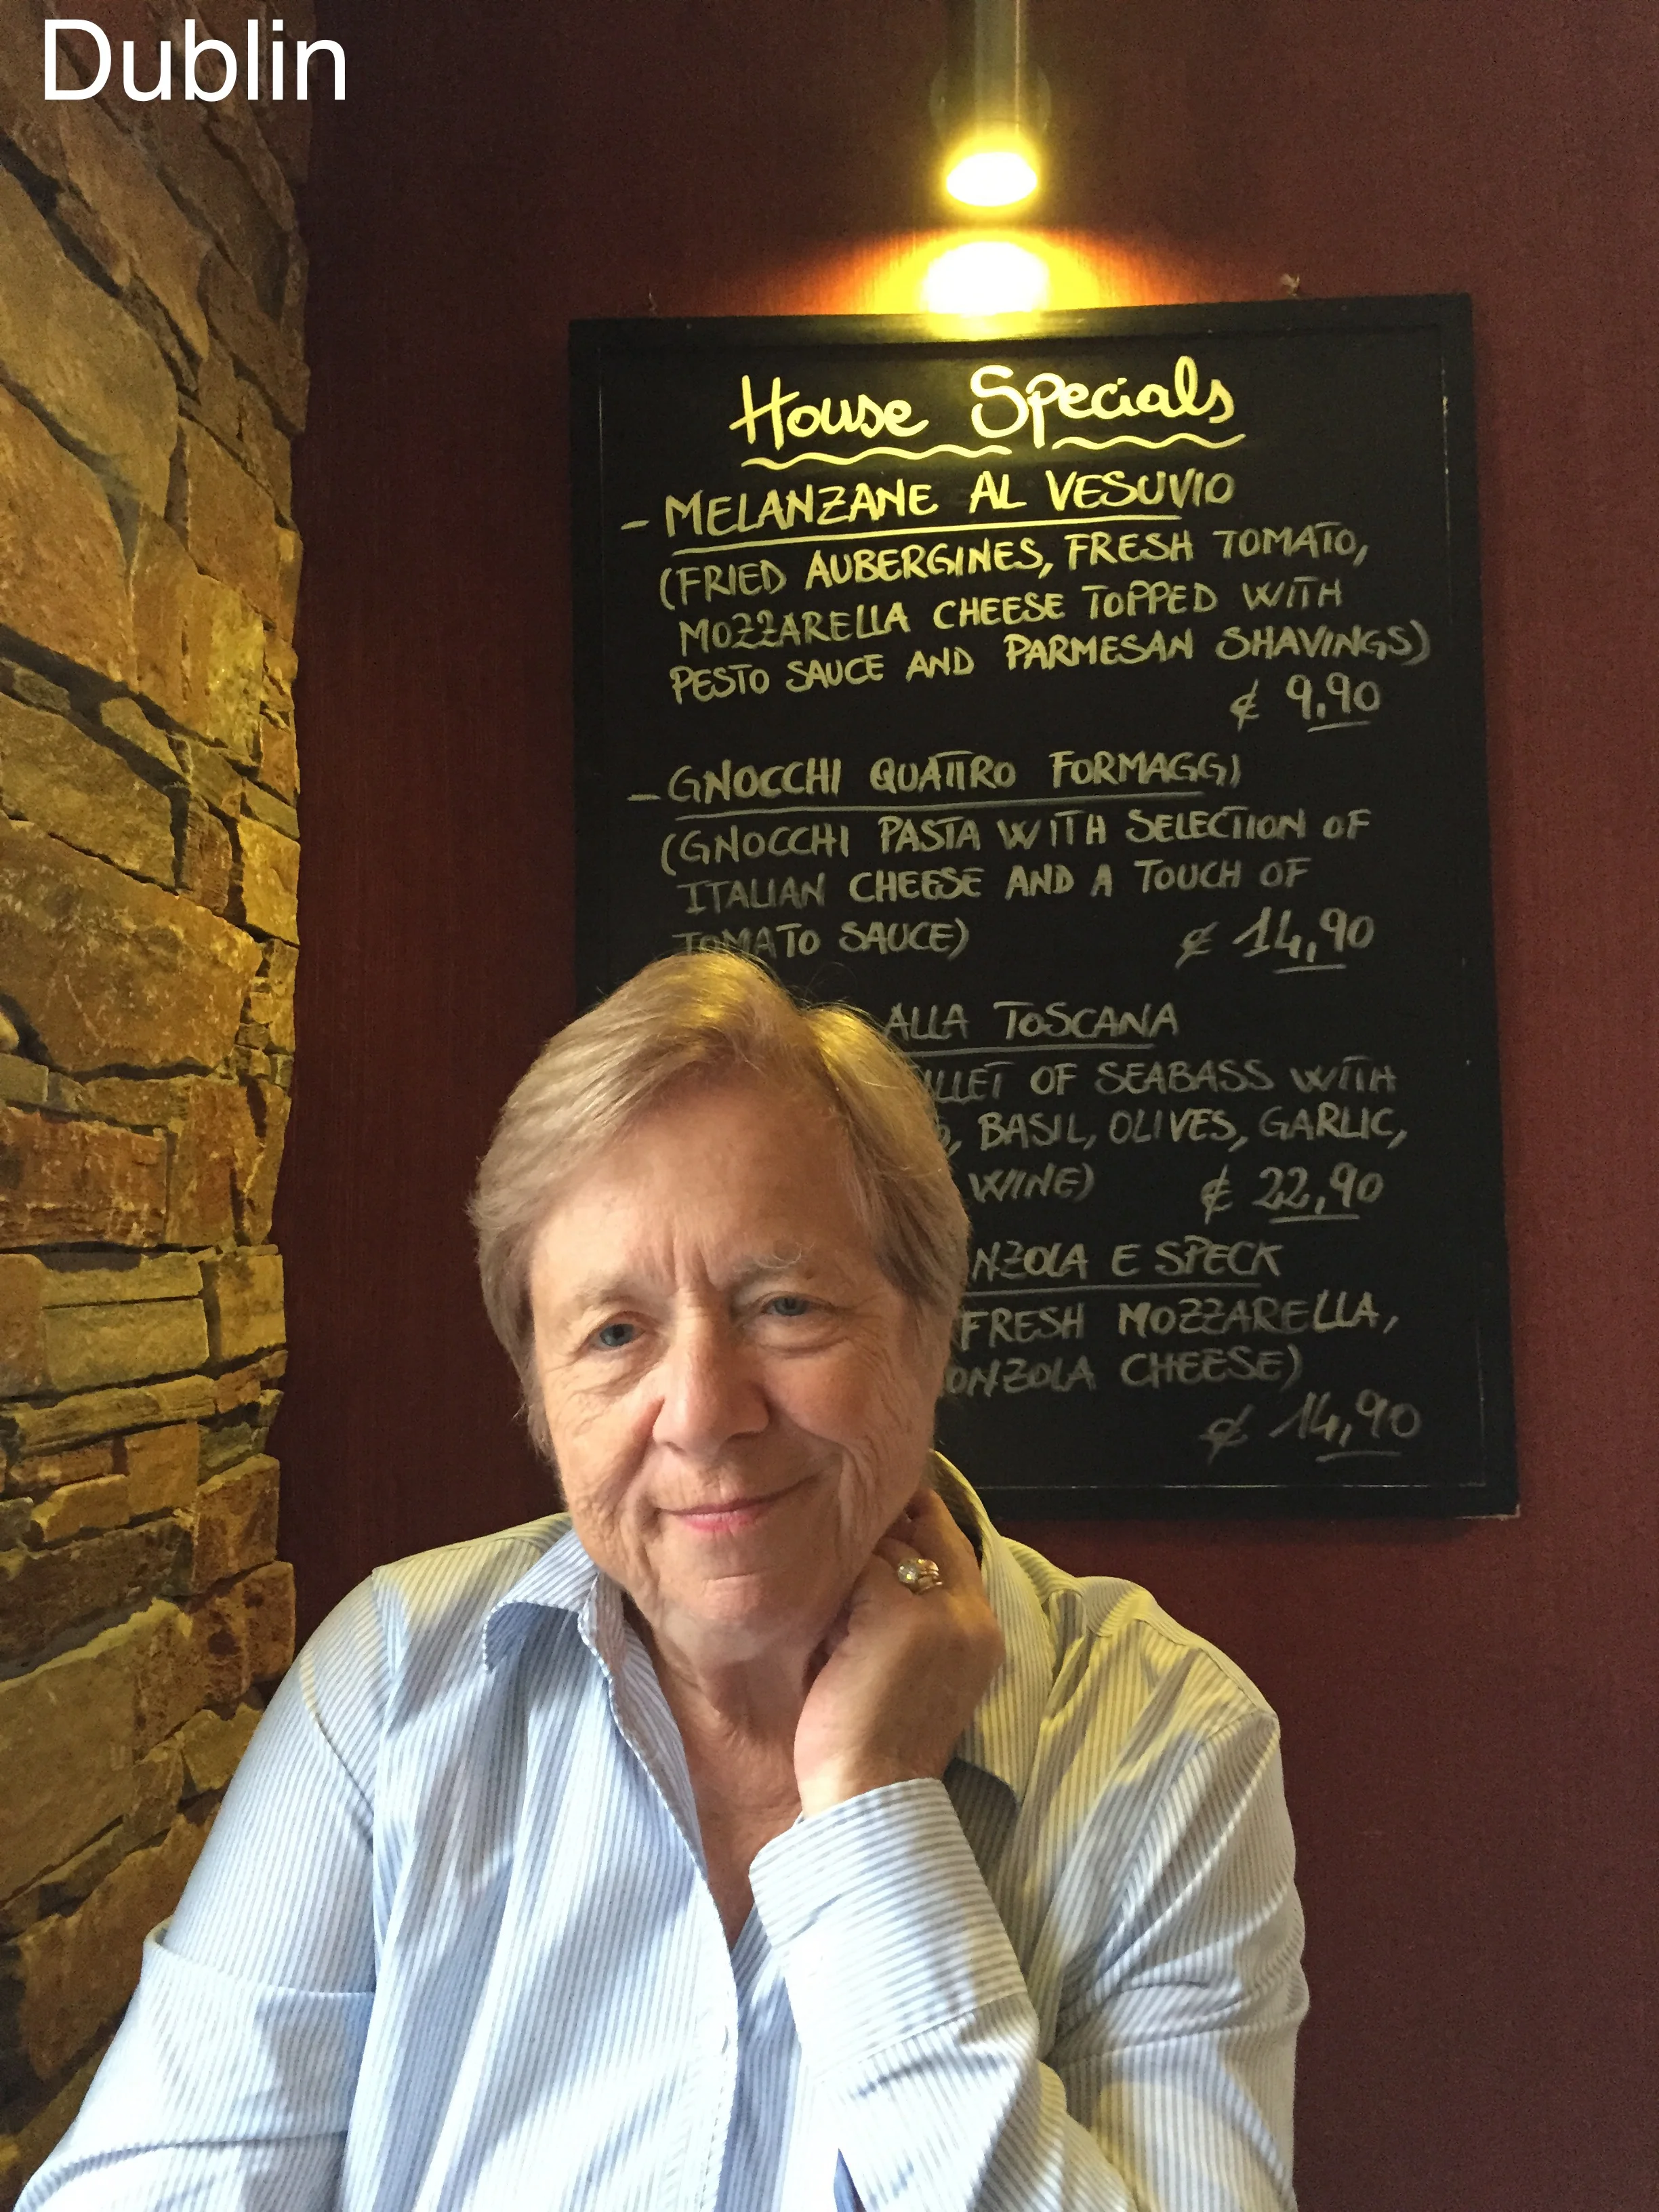 Dublin
House Specials
- MELANZANE AL VESUVIO
(FRIED AUBERGINES, FRESH TOMATO,
MOZZARELLA CHEESE TOPPED WITH
PESTO SAUCE AND PARMESAN SHAVINGS)
€ 9,90
- GNOCCHI QUATTRO FORMAGGI
(GNOCCHI PASTA WITH SELECTION OF
ITALIAN CHEESE AND A TOUCH OF
TOMATO SAUCE) € 14,90
ALLA TOSCANA
OF SEABASS WITH
BASIL, OLIVES, GARLIC,
WINE) € 22,90
E SPECK
FRESH MOZZARELLA,
CHEESE)
€ 14,90